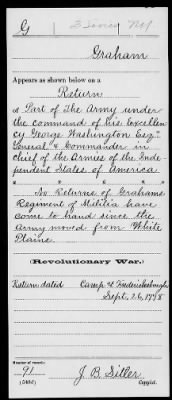 G
Graham
Appears as shown below on a
Return
of Part of the Army under
the command of his Excellen-
cy George Washington Esqr
General & Commander in
chief of the Armies of the Inde-
pendent States of America
No Returns of Grahams
Regiment of Militia have
come to hand since the
Army moved from White
Plains.
(Revolutionary War.)
Return dated Camp at Fredericksburgh,
Sept. 26, 1778
Number of record:
91
J. B. Siller
Copyist.